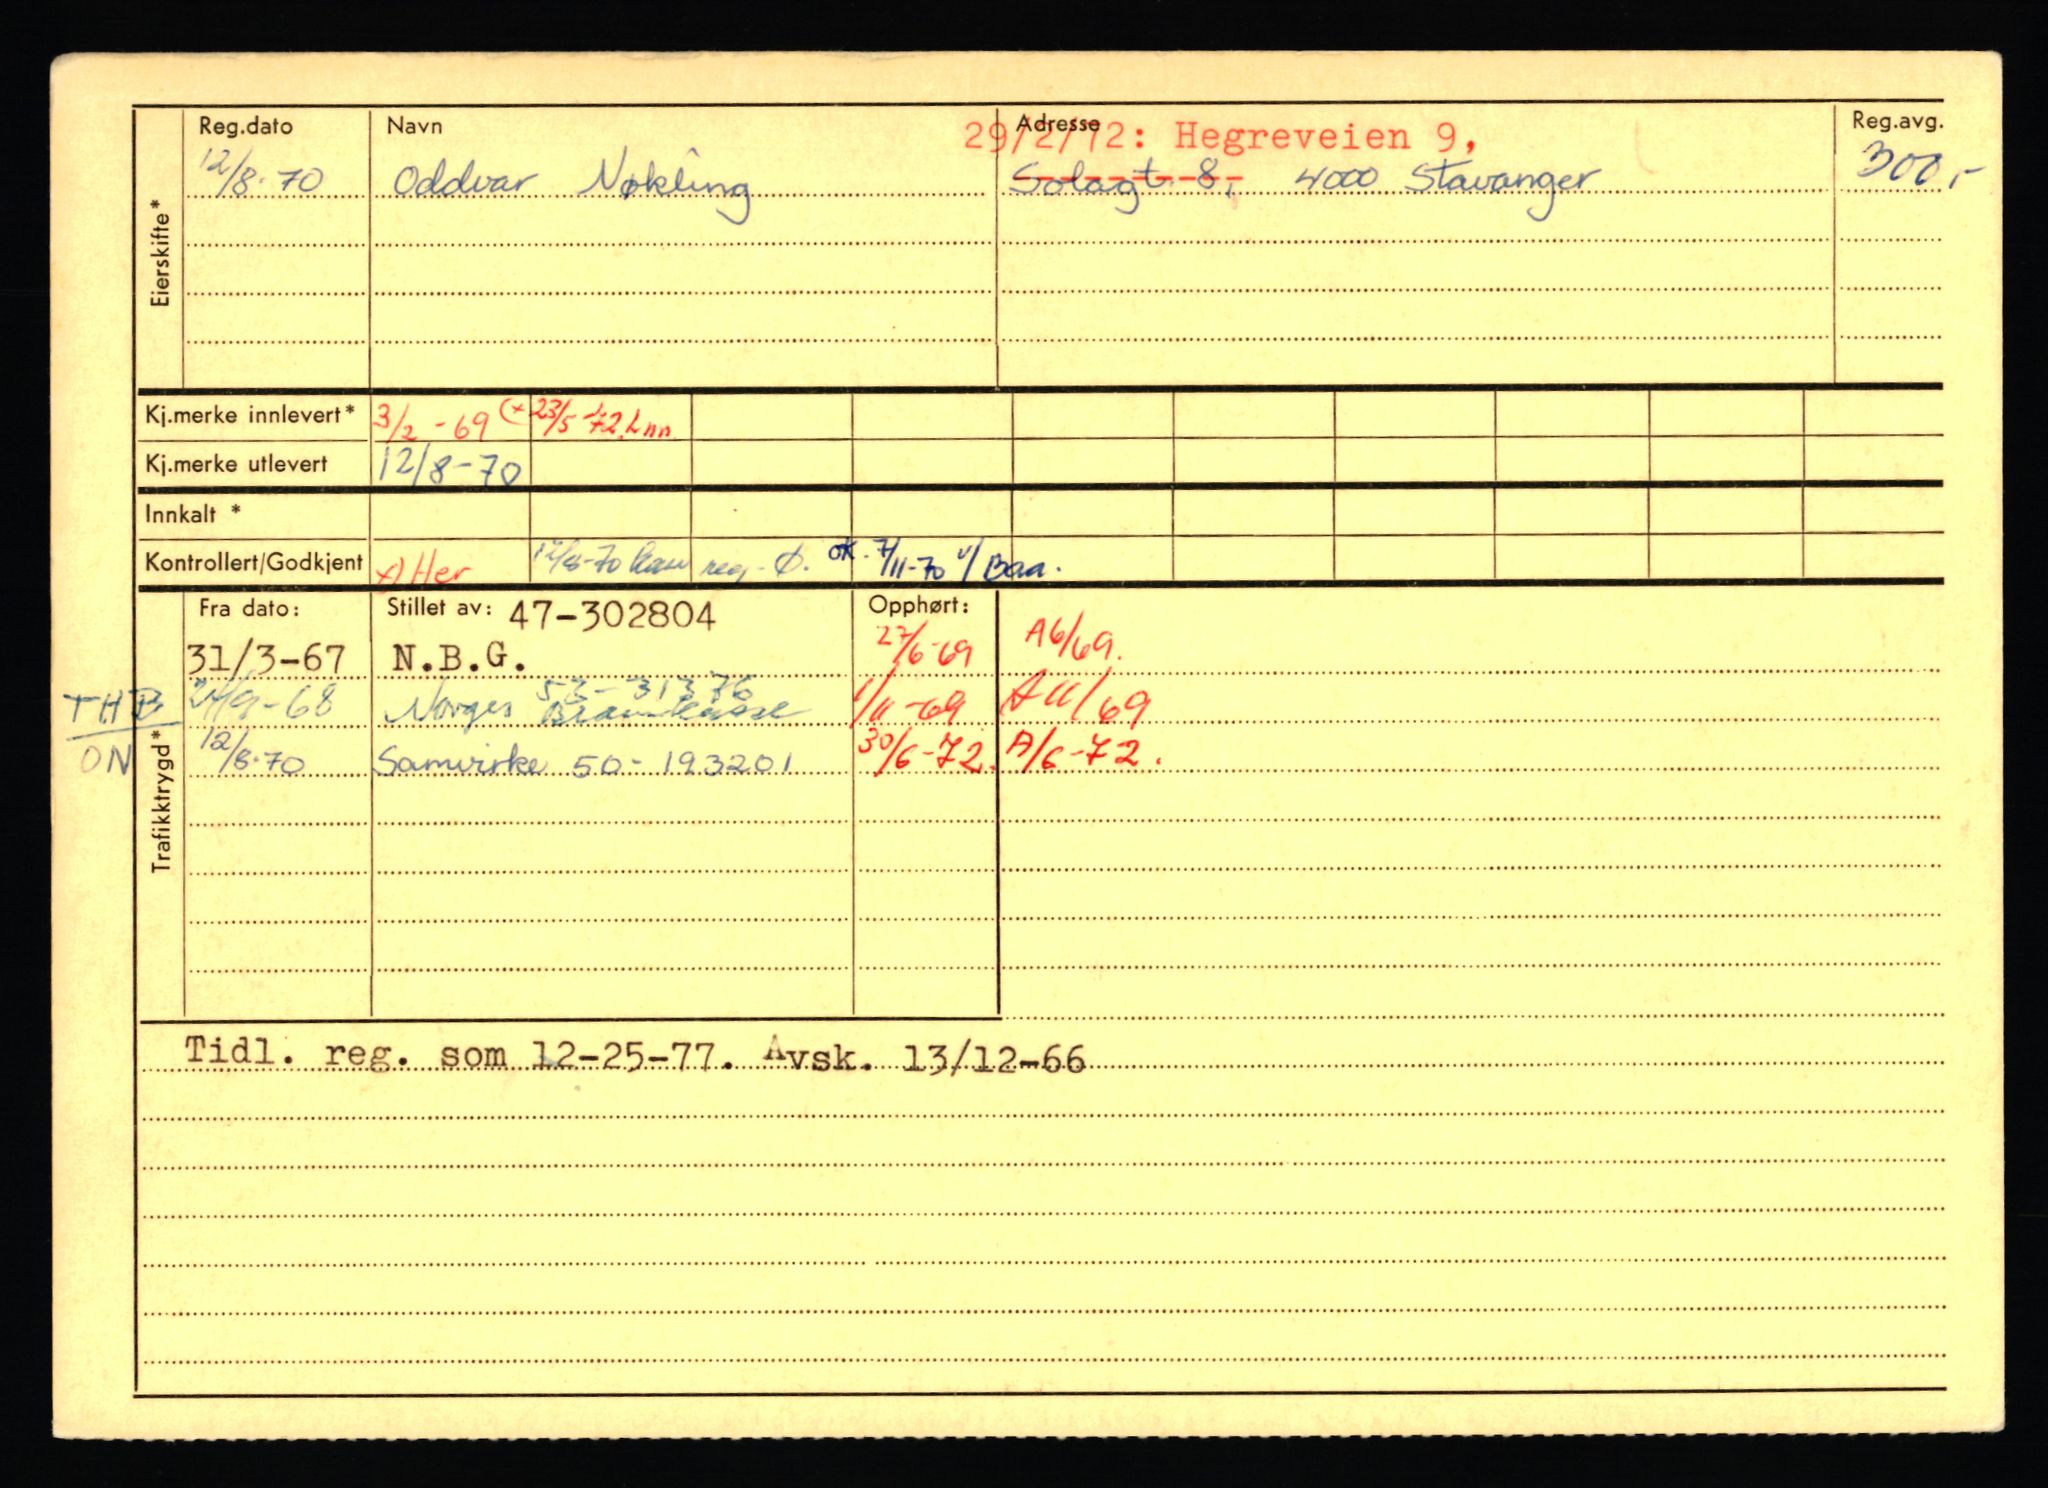 Reg.dato Navn Adresse Reg.avg.
29/2/72: Hegreveien 9,
12/8-70 Oddvar Nøkling Solagt. 8, 4000 Stavanger 300,-
Eierskifte*
Kj.merke innlevert* 3/2-69 (x 23/5-72.
Kj.merke utlevert 12/8-70
Innkalt *
Kontrollert/Godkjent x) Her 12/8-70 reg. Ø. OK. 7/11-70 v/Baa.
Fra dato: Stillet av: 47-302804 Opphørt:
31/3-67 N.B.G. 27/6-69 A6/69.
53-31376
THB /9-68 Norges Brannkasse 1/11-69 A11/69
ON 12/8-70 Samvirke 50-193201 30/6-72. A/6-72.
Trafikktrygd*
Tidl. reg. som 12-25-77. Avsk. 13/12-66